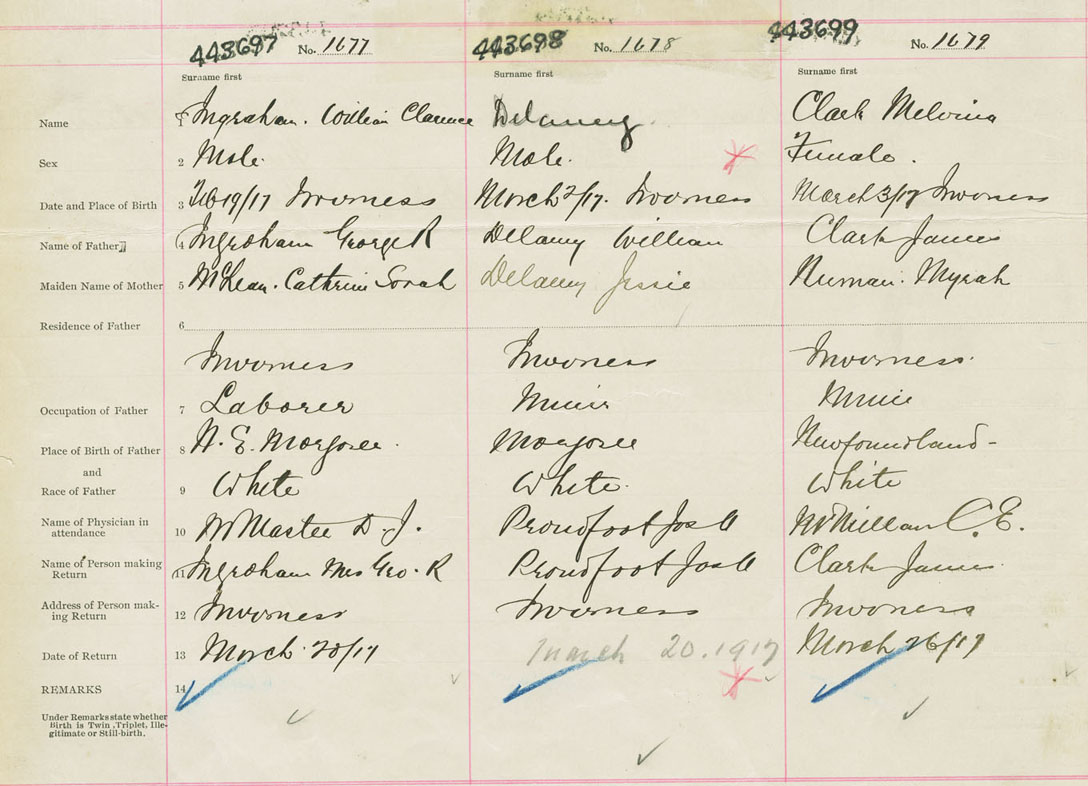 443697 No. 1677 443698 No. 1678 443699 No. 1679
Surname first Surname first Surname first
Name 1 Ingraham. William Clarence Delaney Clark Melvina
Sex 2 Male. Male. Female.
Date and Place of Birth 3 Feb 19/17 Inverness March 2/17. Inverness March 3/17 Inverness
Name of Father 4 Ingraham George R Delaney William Clark James
Maiden Name of Mother 5 McLean. Catherine Sarah Delaney Jessie Myrah
Residence of Father 6
Inverness Inverness Inverness.
Occupation of Father 7 Laborer Miner Miner
Place of Birth of Father 8 N. E. Margaree. Margaree Newfoundland-
and
Race of Father 9 White White. White
Name of Physician in
attendance 10 McMaster D. J. Proudfoot Jos A McMillan C. E.
Name of Person making
Return 11 Ingraham Mrs Geo. R Proudfoot Jos A Clark James.
Address of Person mak-
ing Return 12 Inverness Inverness Inverness
Date of Return 13 March 20/17 March 20. 1917 March 26/17
REMARKS 14
Under Remarks state whether
Birth is Twin, Triplet, Ille-
gitimate or Still-birth.